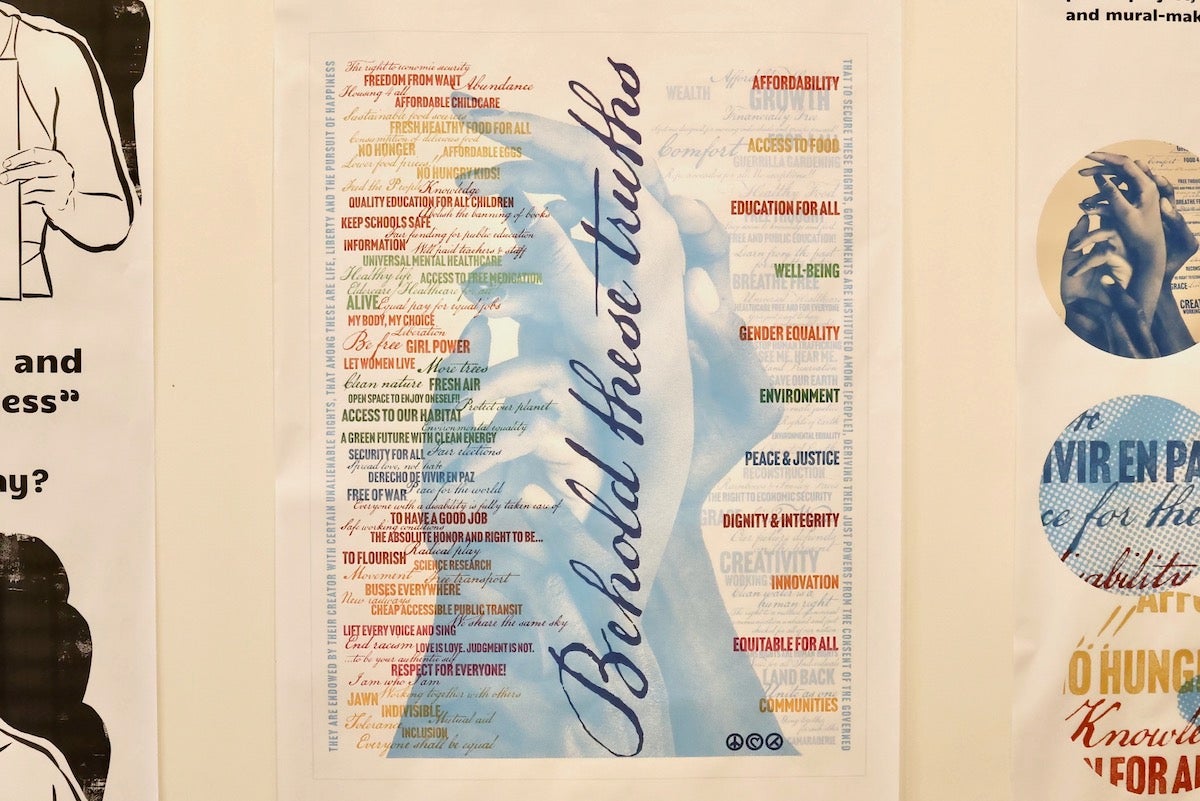 and
ess”
ay?
THEY ARE ENDOWED BY THEIR CREATOR WITH CERTAIN UNALIENABLE RIGHTS, THAT AMONG THESE ARE LIFE, LIBERTY AND THE PURSUIT OF HAPPINESS
The right to economic security
FREEDOM FROM WANT Abundance
Housing 4 all
AFFORDABLE CHILDCARE
Sustainable food sources
FRESH HEALTHY FOOD FOR ALL
Consumption of delicious food
NO HUNGER AFFORDABLE EGGS
Lower food prices!!
NO HUNGRY KIDS!
Feed the People Knowledge
QUALITY EDUCATION FOR ALL CHILDREN
Abolish the banning of books
KEEP SCHOOLS SAFE
Fair funding for public education
INFORMATION Well paid teachers & staff
UNIVERSAL MENTAL HEALTHCARE
Healthy life ACCESS TO FREE MEDICATION
Eldercare Healthcare for all
ALIVE Equal pay for equal jobs
MY BODY, MY CHOICE
Liberation
Be free GIRL POWER
LET WOMEN LIVE More trees
Clean nature FRESH AIR
OPEN SPACE TO ENJOY ONESELF!!
Protect our planet
ACCESS TO OUR HABITAT
Environmental equality
A GREEN FUTURE WITH CLEAN ENERGY
SECURITY FOR ALL Fair elections
Spread love, not hate
DERECHO DE VIVIR EN PAZ
FREE OF WAR Peace for the world
Everyone with a disability is fully taken care of
TO HAVE A GOOD JOB
Safe working conditions
THE ABSOLUTE HONOR AND RIGHT TO BE...
TO FLOURISH Radical play
SCIENCE RESEARCH
Movement Free transport
BUSES EVERYWHERE
New railways
CHEAP ACCESSIBLE PUBLIC TRANSIT
We share the same sky
LIFT EVERY VOICE AND SING
End racism LOVE IS LOVE. JUDGMENT IS NOT.
...to be your authentic self
RESPECT FOR EVERYONE!
I am who I am
JAWN Working together with others
INDIVISIBLE
Tolerance Mutual aid
INCLUSION
Everyone shall be equal
Behold these truths
AFFORDABILITY
WEALTH
GROWTH
Financially Free
ACCESS TO FOOD
Comfort
GUERRILLA GARDENING
EDUCATION FOR ALL
FREE AND PUBLIC EDUCATION!
WELL-BEING
BREATHE FREE
Universal Healthcare
HEALTHCARE FREE AND FOR EVERYONE
GENDER EQUALITY
STOP HUMAN TRAFFICKING
SEE ME, HEAR ME.
Land Preservation
SAVE OUR EARTH
ENVIRONMENT
ENVIRONMENTAL EQUALITY
PEACE & JUSTICE
RECONSTRUCTION
THE RIGHT TO ECONOMIC SECURITY
GRACE
DIGNITY & INTEGRITY
CREATIVITY
WORKING
INNOVATION
Clean water is a
human right
EQUITABLE FOR ALL
LAND BACK
Unite as one
COMMUNITIES
CAMARADERIE
THAT TO SECURE THESE RIGHTS, GOVERNMENTS ARE INSTITUTED AMONG [PEOPLE], DERIVING THEIR JUST POWERS FROM THE CONSENT OF THE GOVERNED
and mural-mak
Comfort
GRACE
CREAT
WORKING
VIVIR EN PA
ce for the
ability
AFFO
O HUNGE
Knowle
N FOR AL